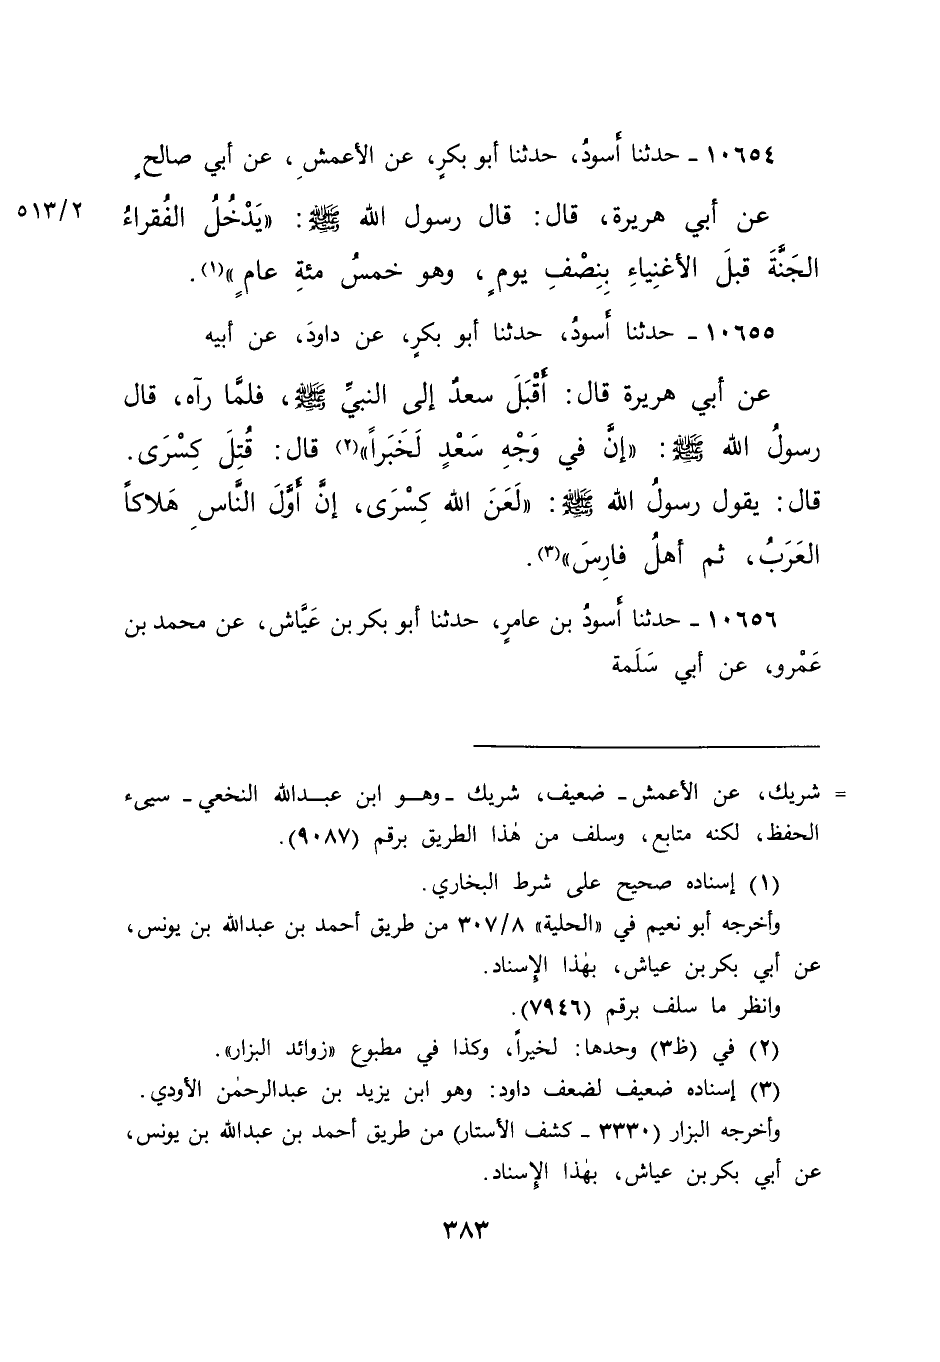 ١٠٦٥٤ ـ حدثنا أَسودُ، حدثنا أبو بكرٍ، عن الأعمشِ، عن أبي صالحٍ
عن أبي هريرة، قال: قال رسول الله ﷺ: «يَدْخُلُ الفُقراءُ
٥١٣/٢
الجَنَّةَ قبلَ الأغنِياءِ بِنِصْفِ يومٍ، وهو خمسُ مئةِ عامٍ»(١).
١٠٦٥٥ ـ حدثنا أَسودُ، حدثنا أبو بكرٍ، عن داودَ، عن أبيه
عن أبي هريرة قال: أَقْبَلَ سعدٌ إلى النبيِّ ﷺ، فلمَّا رآه، قال
رسولُ الله ﷺ: «إنَّ في وَجْهِ سَعْدٍ لَخَبَراً»(٢) قال: قُتِلَ كِسْرَى.
قال: يقول رسولُ الله ﷺ: «لَعَنَ الله كِسْرَى، إنَّ أَوَّلَ النَّاسِ هَلاكاً
العَرَبُ، ثم أهلُ فارِسَ»(٣).
١٠٦٥٦ ـ حدثنا أَسودُ بن عامرٍ، حدثنا أبو بكر بن عَيَّاش، عن محمد بن
عَمْرو، عن أبي سَلَمة
= شريك، عن الأعمش ـ ضعيف، شريك ـ وهو ابن عبدالله النخعي ـ سيىء
الحفظ، لكنه متابع، وسلف من هٰذا الطريق برقم (٩٠٨٧).
(١) إسناده صحيح على شرط البخاري.
وأخرجه أبو نعيم في «الحلية» ٣٠٧/٨ من طريق أحمد بن عبدالله بن يونس،
عن أبي بكر بن عياش، بهٰذا الإسناد.
وانظر ما سلف برقم (٧٩٤٦).
(٢) في (ظ٣) وحدها: لخيراً، وكذا في مطبوع «زوائد البزار».
(٣) إسناده ضعيف لضعف داود: وهو ابن يزيد بن عبدالرحمٰن الأودي.
وأخرجه البزار (٣٣٣٠ ـ كشف الأستار) من طريق أحمد بن عبدالله بن يونس،
عن أبي بكر بن عياش، بهٰذا الإسناد.
٣٨٣